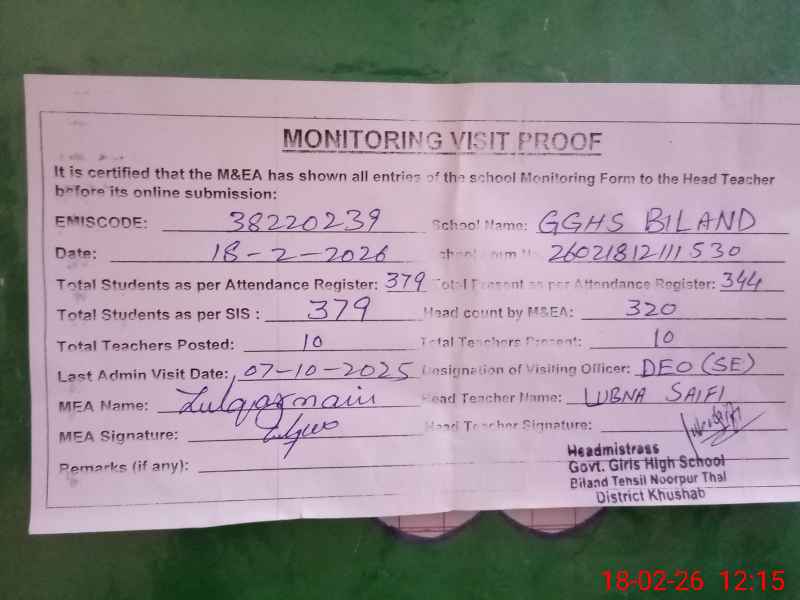 MONITORING VISIT PROOF
It is certified that the M&EA has shown all entries of the school Monitoring Form to the Head Teacher
before its online submission:
EMISCODE: 38220239 School Name: GGHS BILAND
Date: 18-2-2026 School Form No. 26021812111530
Total Students as per Attendance Register: 379 Total Present as per Attendance Register: 344
Total Students as per SIS : 379 Head count by M&EA: 320
Total Teachers Posted: 10 Total Teachers Present: 10
Last Admin Visit Date: 07-10-2025 Designation of Visiting Officer: DEO (SE)
MEA Name: Zulqarnain Head Teacher Name: LUBNA SAIFI
MEA Signature: Head Teacher Signature:
Remarks (if any):
Headmistrass
Govt. Girls High School
Biland Tehsil Noorpur Thal
District Khushab
18-02-26 12:15